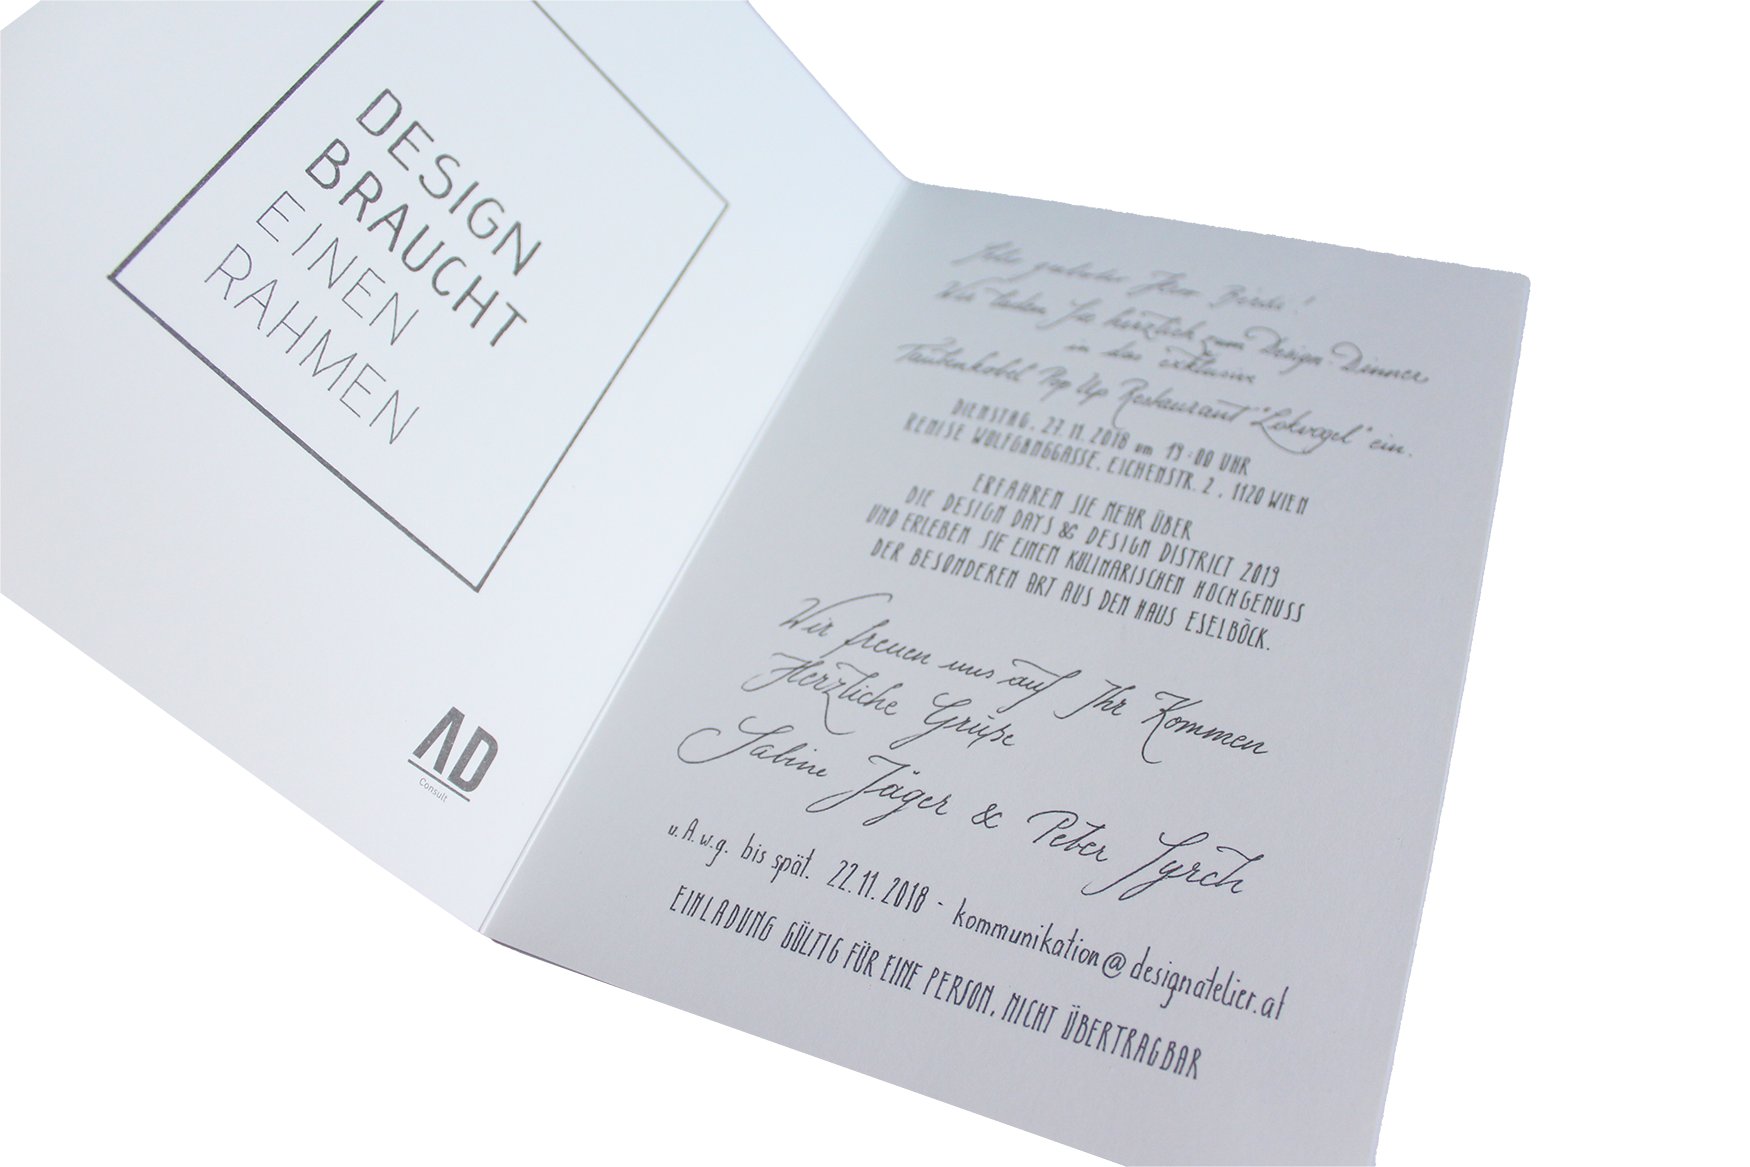 DESIGN
BRAUCHT
EINEN
RAHMEN
AD
Consult
Sehr geehrter Herr
Wir laden Sie herzlich zum Design-Dinner
in das exklusive
Taubenkobel Pop Up Restaurant "Lokvogel" ein.
DIENSTAG, 27.11.2018 um 19:00 UHR
REMISE WOLFGANGGASSE, EICHENSTR. 2, 1120 WIEN
ERFAHREN SIE MEHR ÜBER
DIE DESIGN DAYS & DESIGN DISTRICT 2019
UND ERLEBEN SIE EINEN KULINARISCHEN HOCHGENUSS
DER BESONDEREN ART AUS DEM HAUS ESELBÖCK.
Wir freuen uns auf Ihr Kommen
Herzliche Grüße
Sabine Jäger & Peter Syrch
u.A.w.g. bis spät. 22.11.2018 - kommunikation@designatelier.at
EINLADUNG GÜLTIG FÜR EINE PERSON, NICHT ÜBERTRAGBAR